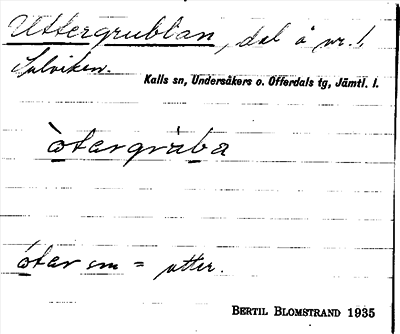 Uttergrubban, dal å nr. 1,
Sulviken.
Kalls sn, Undersåkers o. Offerdals tg, Jämtl. l.
òtargrùba
ótar sm = utter.
BERTIL BLOMSTRAND 1935